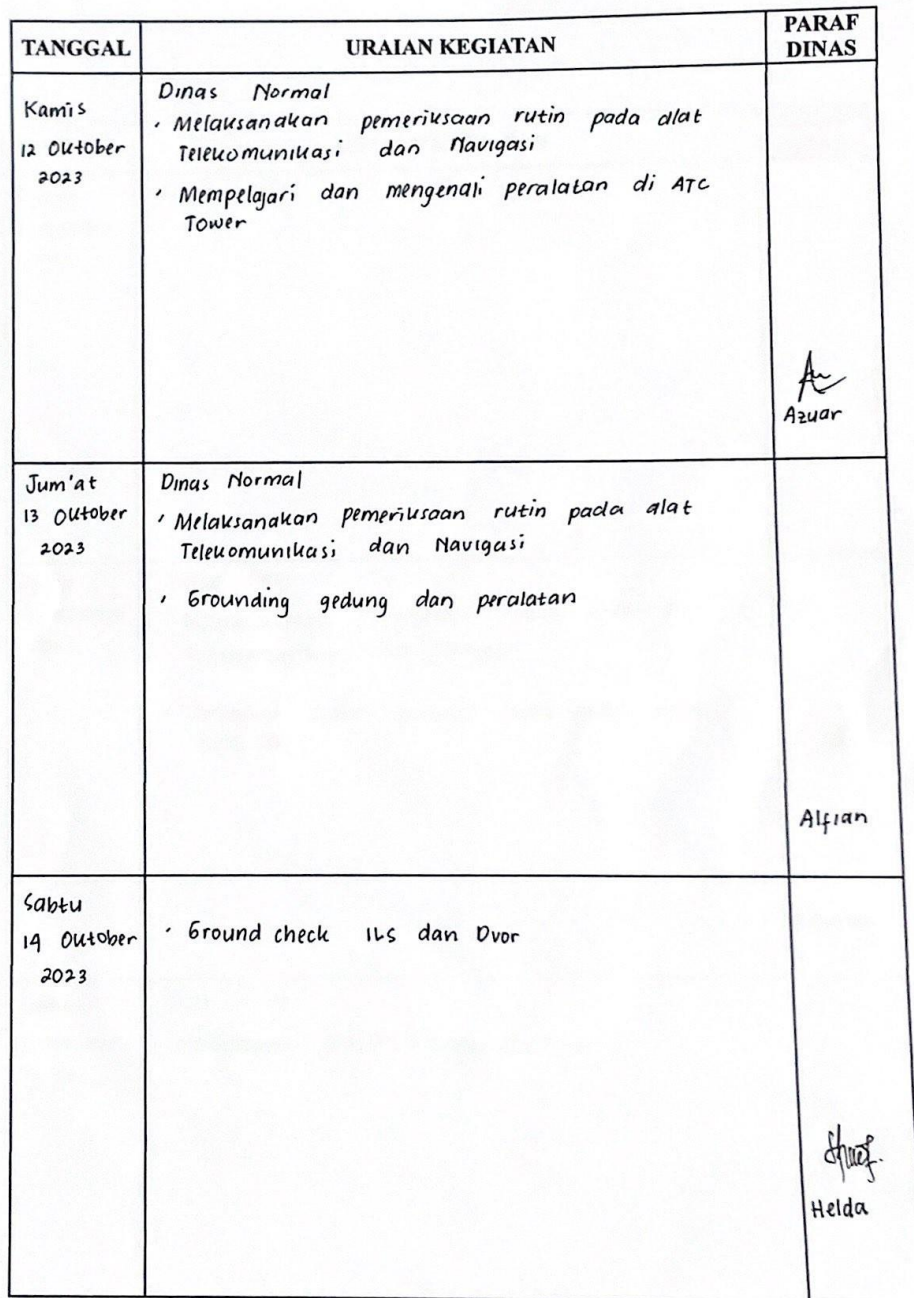 TANGGAL URAIAN KEGIATAN PARAF DINAS
Kamis
12 Oktober
2023
Dinas Normal
• Melaksanakan pemeriksaan rutin pada alat
Telekomunikasi dan Navigasi
• Mempelajari dan mengenali peralatan di ATC
Tower
Azuar
Jum'at
13 Oktober
2023
Dinas Normal
• Melaksanakan pemeriksaan rutin pada alat
Telekomunikasi dan Navigasi
• Grounding gedung dan peralatan
Alfian
Sabtu
14 Oktober
2023
• Ground check ILS dan Dvor
Helda